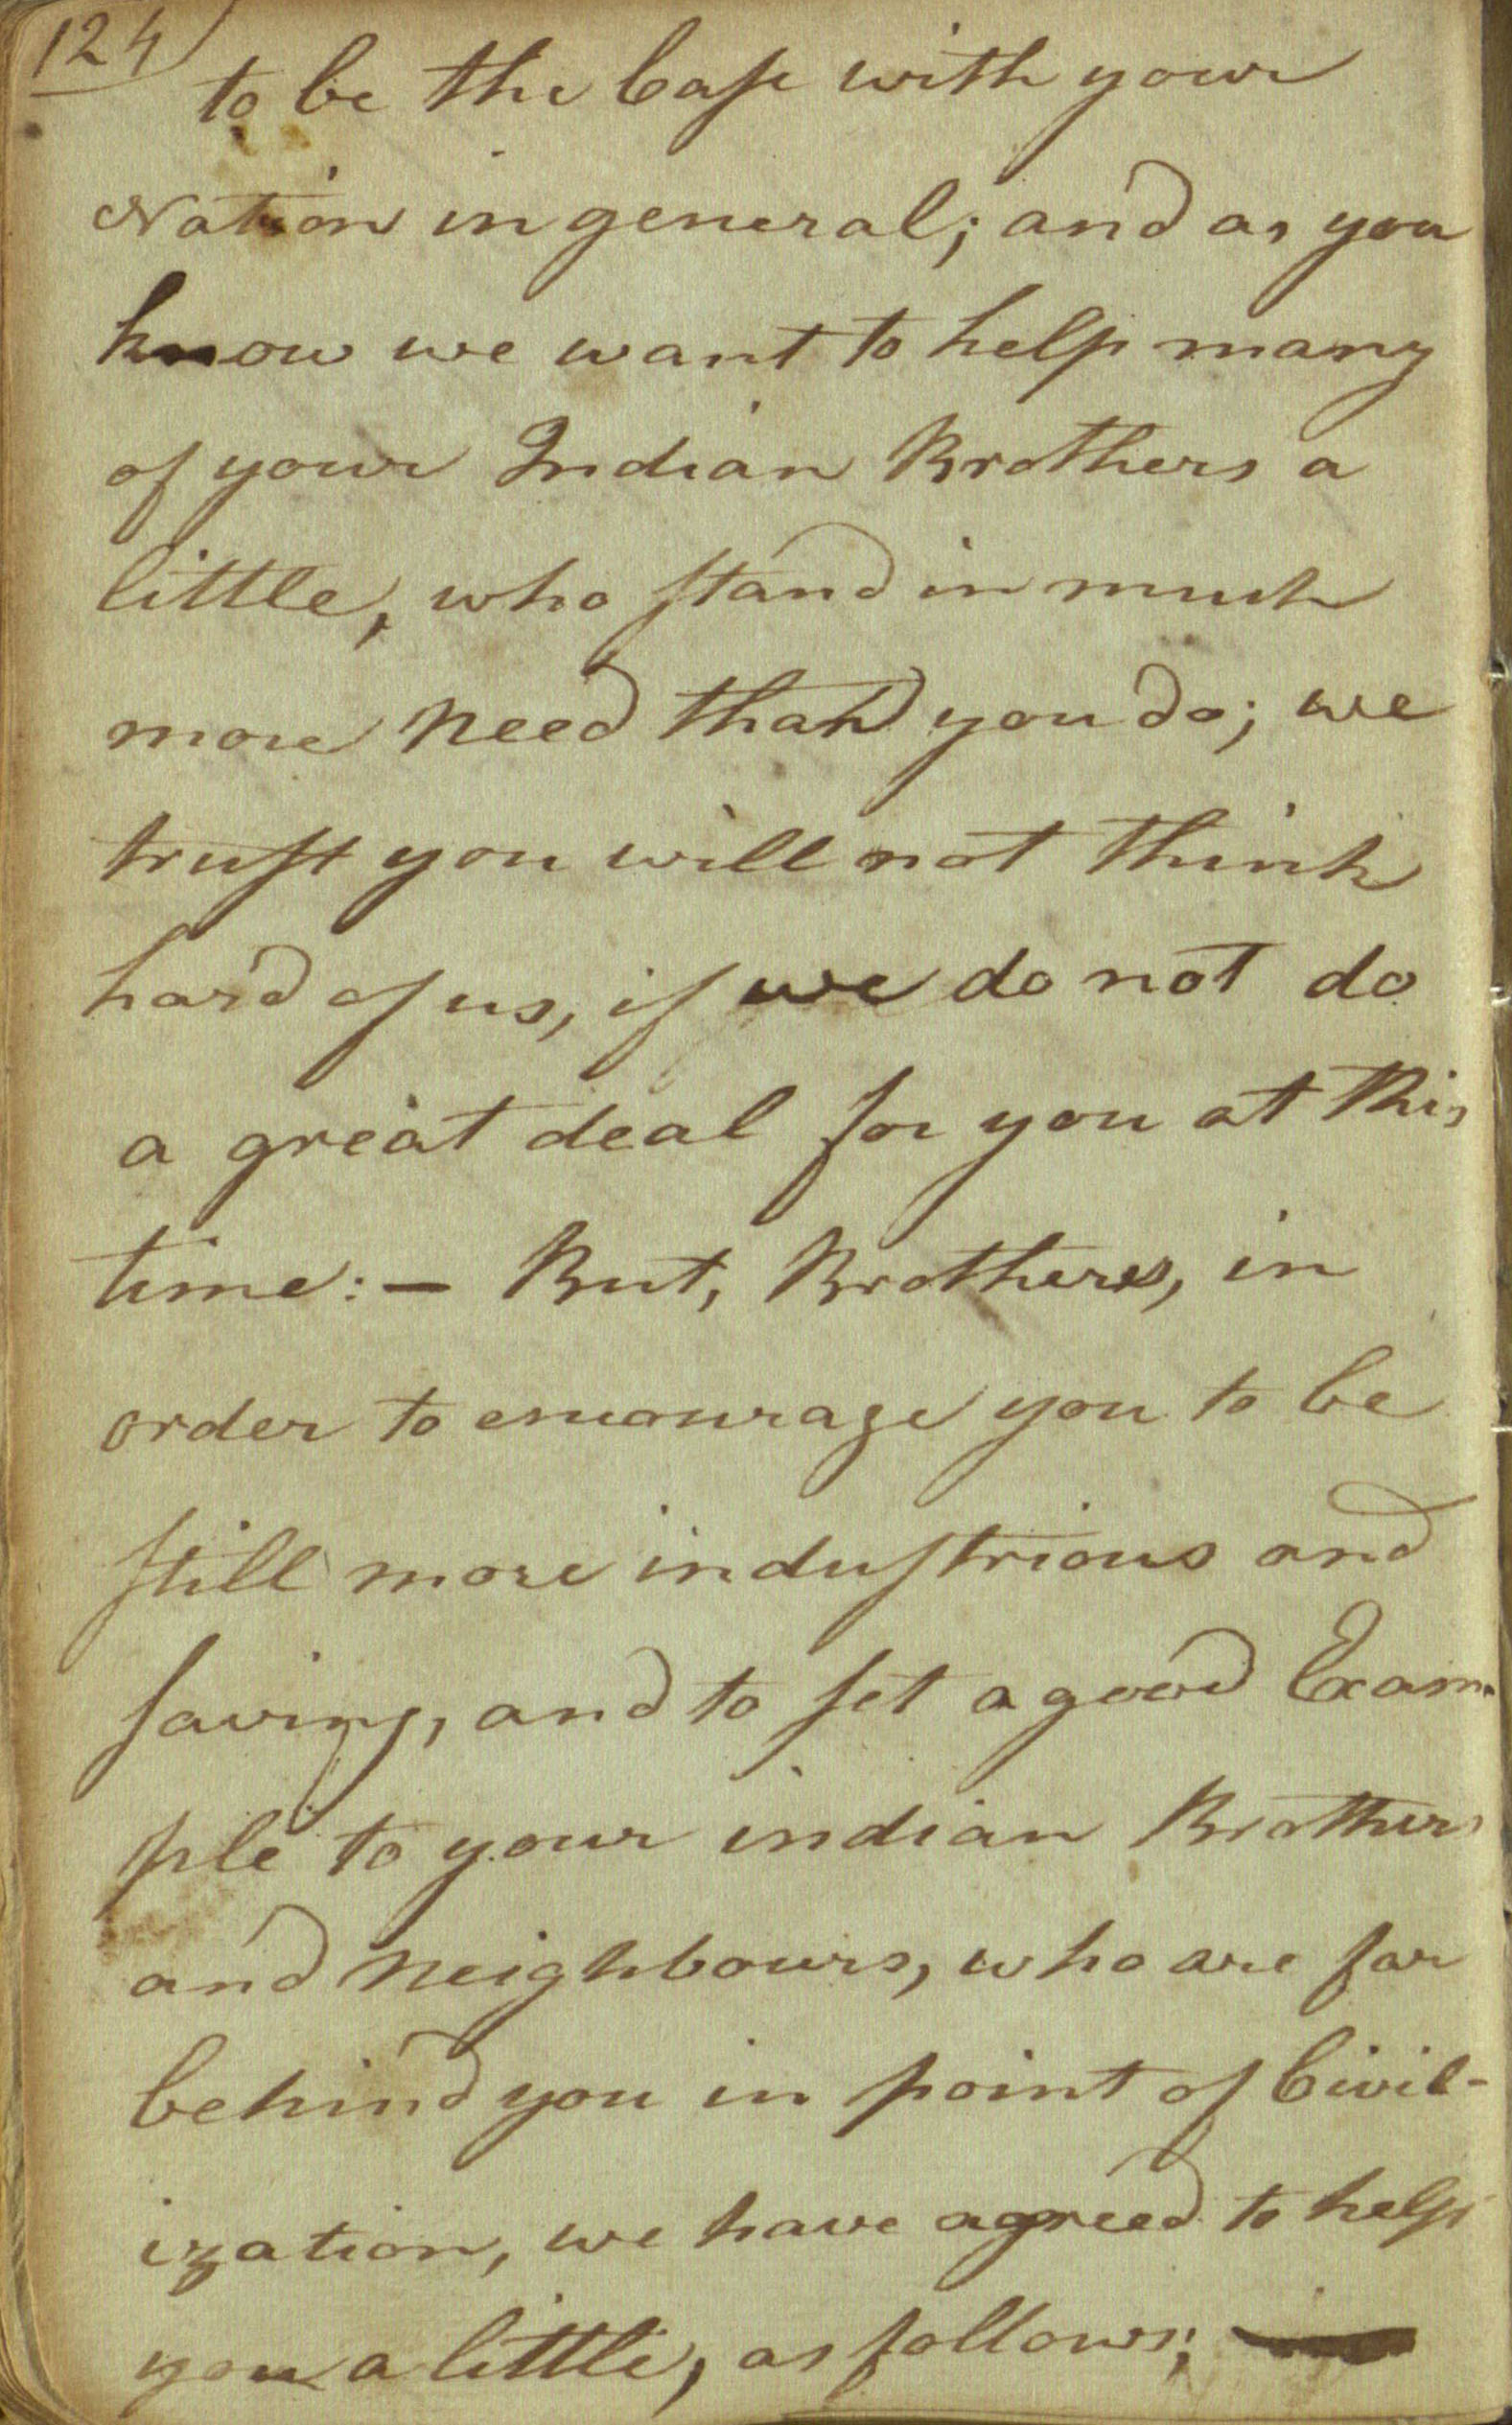 124
to be the Case with your
Nation in general; and as you
know we want to help many
of your Indian Brothers a
little, who stand in much
more need than you do; we
trust you will not think
hard of us, if we do not do
a great deal for you at this
time:— But, Brothers, in
order to encourage you to be
still more industrious and
saving, and to set a good Exam-
ple to your indian Brothers
and Neighbours, who are far
behind you in point of Civil-
ization, we have agreed to help
you a little, as follows; —